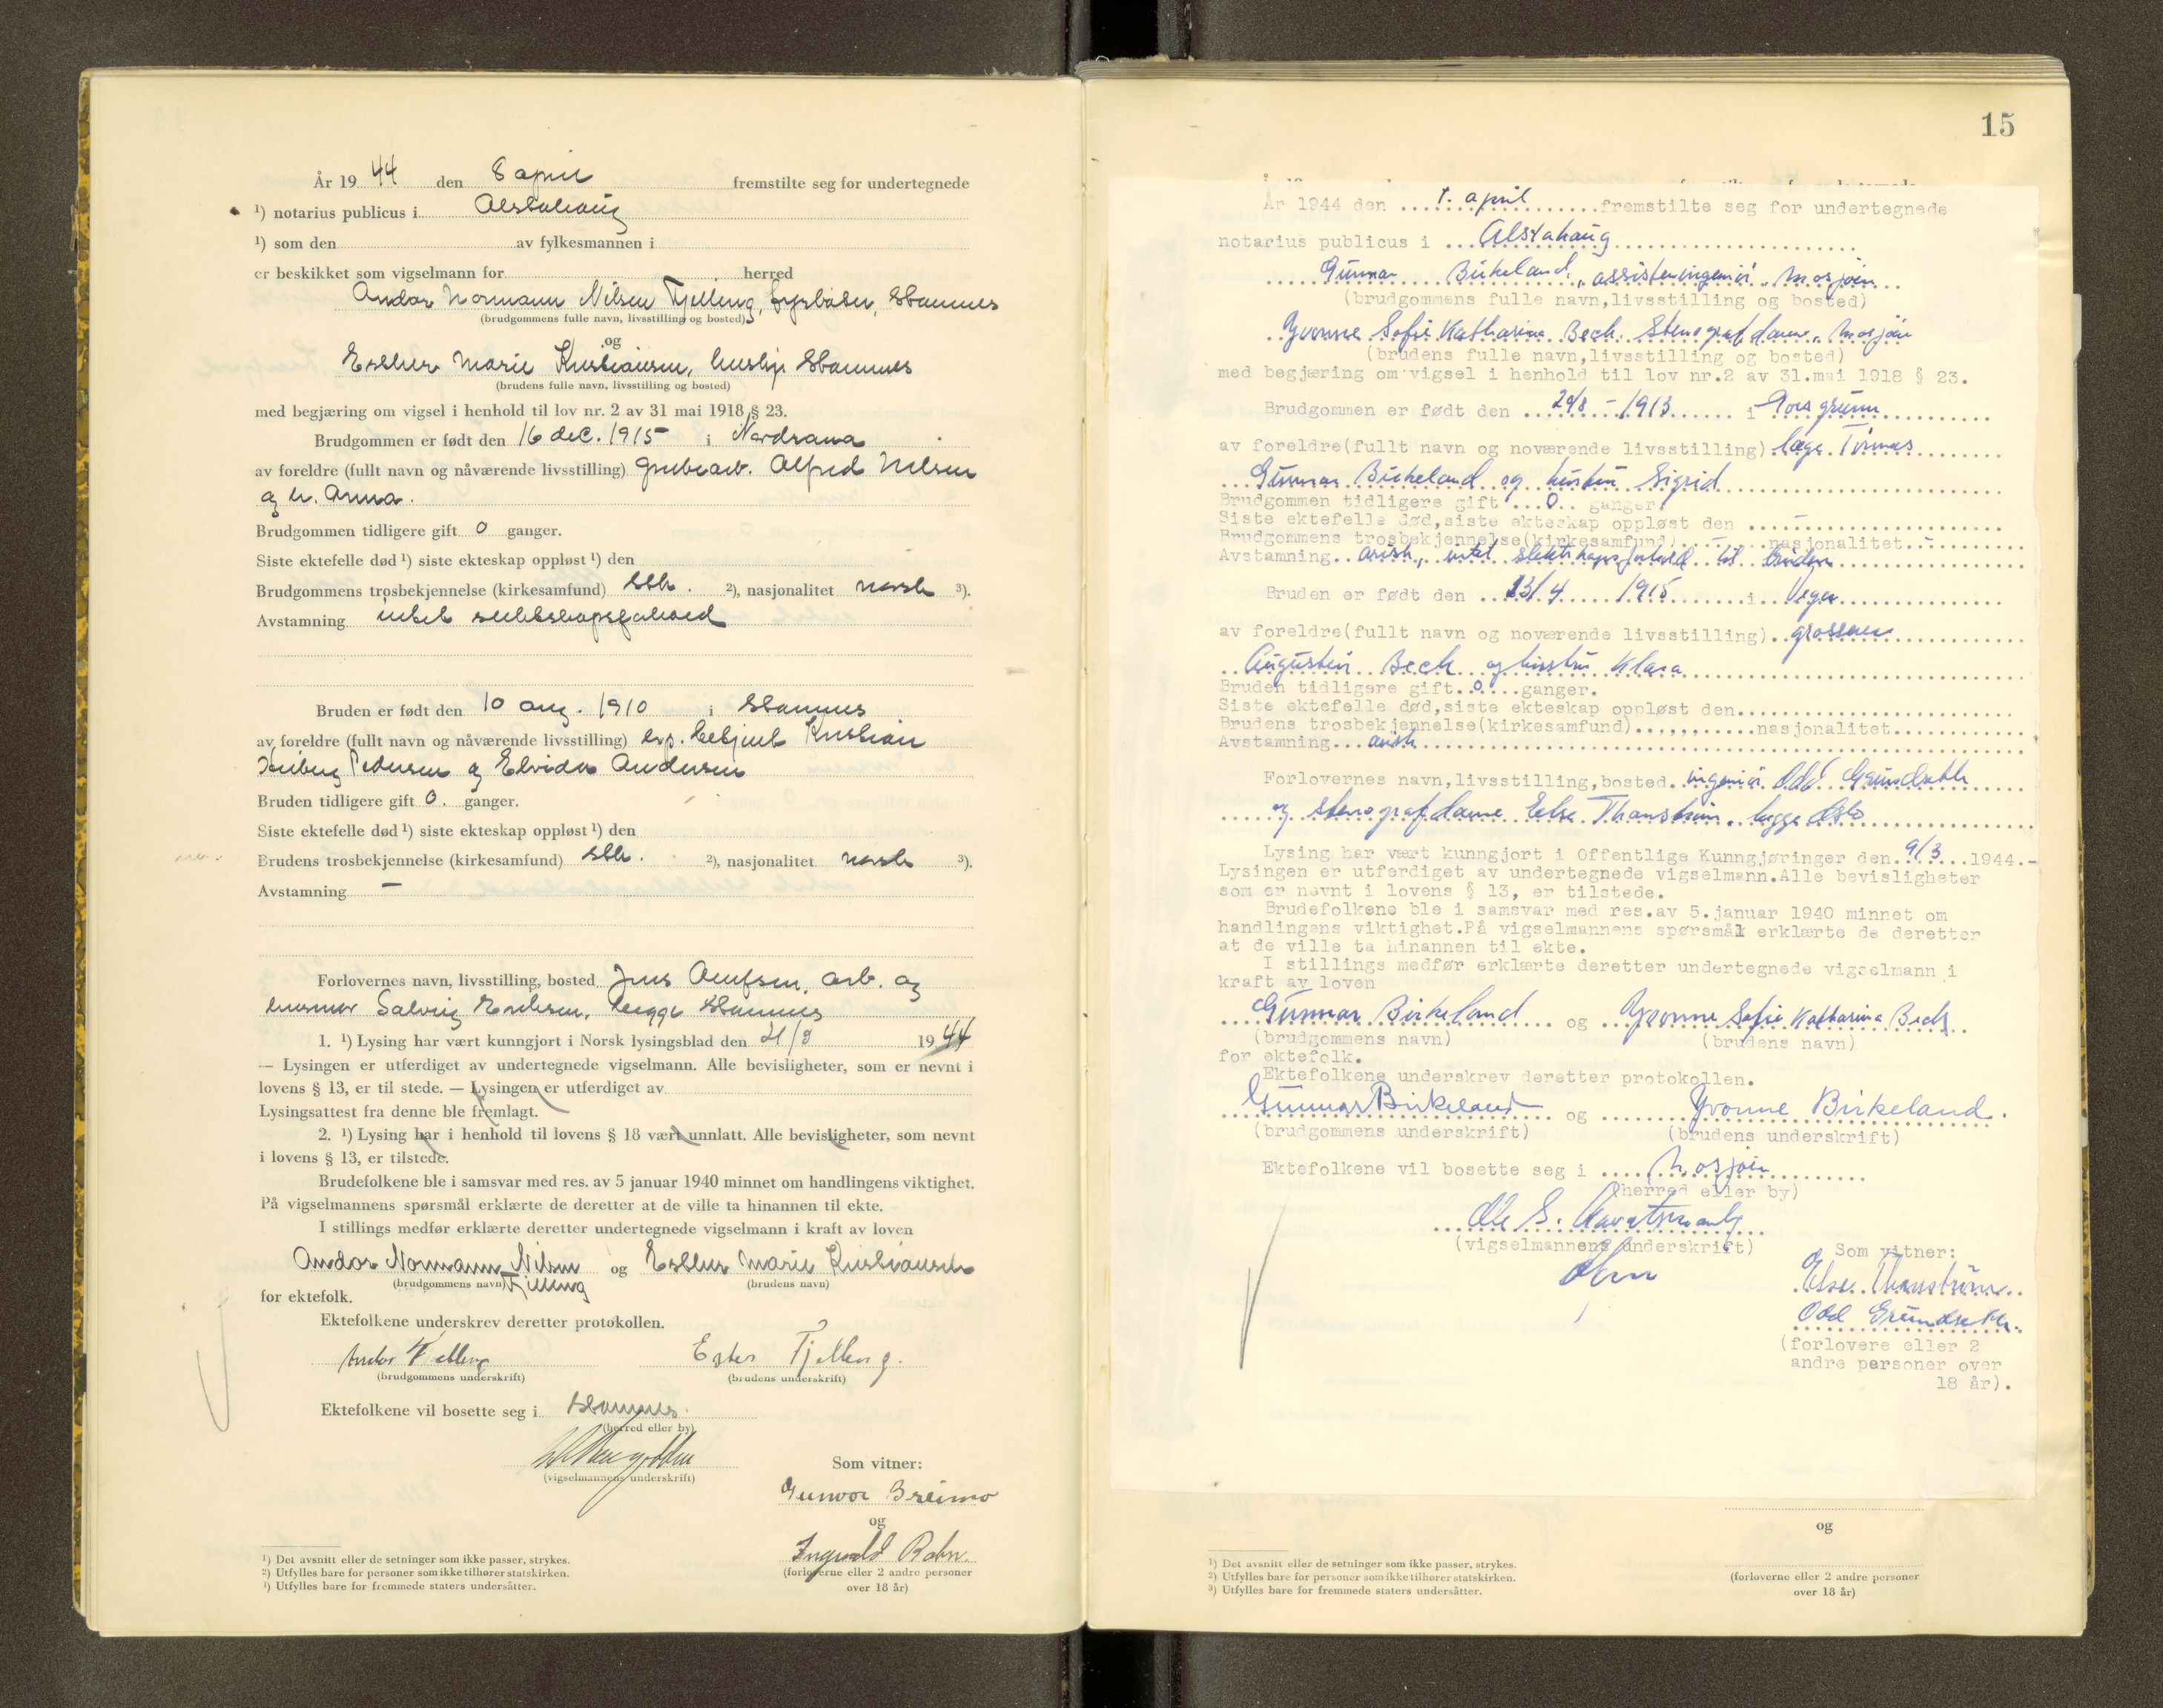 År 19 44 den 8 april fremstilte seg for undertegnede
¹) notarius publicus i Alstahaug
¹) som den av fylkesmannen i
er beskikket som vigselmann for herred
Andor Normann Nilsen Fjelleng, fyrbøter, Stamnes
(brudgommens fulle navn, livsstilling og bosted)
og
Esther Marie Kristiansen, hushj. Stamnes
(brudens fulle navn, livsstilling og bosted)
med begjæring om vigsel i henhold til lov nr. 2 av 31 mai 1918 § 23.
Brudgommen er født den 16 dec. 1915 i Nordrana
av foreldre (fullt navn og nåværende livsstilling) grubearb. Alfred Nilsen
og h. Anna.
Brudgommen tidligere gift 0 ganger.
Siste ektefelle død ¹) siste ekteskap oppløst ¹) den
Brudgommens trosbekjennelse (kirkesamfund) stk. ²), nasjonalitet norsk ³).
Avstamning intet slektskapsforhold
Bruden er født den 10 aug. 1910 i Stamnes
av foreldre (fullt navn og nåværende livsstilling) Kristian
Pedersen og Andersen
Bruden tidligere gift 0. ganger.
Siste ektefelle død ¹) siste ekteskap oppløst ¹) den
Brudens trosbekjennelse (kirkesamfund) stk. ²), nasjonalitet norsk ³).
Avstamning —
Forlovernes navn, livsstilling, bosted Jens Olufsen, arb. og
husmor Solveig begge Stamnes
1. ¹) Lysing har vært kunngjort i Norsk lysingsblad den 21/3 19 44
— Lysingen er utferdiget av undertegnede vigselmann. Alle bevisligheter, som er nevnt i
lovens § 13, er til stede. — Lysingen er utferdiget av
Lysingsattest fra denne ble fremlagt.
2. ¹) Lysing har i henhold til lovens § 18 vært unnlatt. Alle bevisligheter, som nevnt
i lovens § 13, er tilstede.
Brudefolkene ble i samsvar med res. av 5 januar 1940 minnet om handlingens viktighet.
På vigselmannens spørsmål erklærte de deretter at de ville ta hinannen til ekte.
I stillings medfør erklærte deretter undertegnede vigselmann i kraft av loven
Andor Normann Nilsen og Esther Marie Kristiansen
(brudgommens navn) Fjelleng (brudens navn)
for ektefolk.
Ektefolkene underskrev deretter protokollen.
Andor Fjelleng Ester Fjelleng.
(brudgommens underskrift) (brudens underskrift)
Ektefolkene vil bosette seg i Stamnes.
(herred eller by)
(vigselmannens underskrift)
Som vitner:
Gunvor Breimo
og
Ingvald Rahn.
(forloverne eller 2 andre personer
over 18 år)
¹) Det avsnitt eller de setninger som ikke passer, strykes.
²) Utfylles bare for personer som ikke tilhører statskirken.
³) Utfylles bare for fremmede staters undersåtter.
15
År 1944 den 1. april fremstilte seg for undertegnede
notarius publicus i Alstahaug
Gunnar Birkeland, assisteningeniør, Mosjøen
(brudgommens fulle navn,livsstilling og bosted)
Yvonne Sofie Katharina Beck. Stenografdame, Mosjøen
(brudens fulle navn,livsstilling og bosted)
med begjæring om vigsel i henhold til lov nr.2 av 31.mai 1918 § 23.
Brudgommen er født den 20/8 - 1913 i Porsgrunn
av foreldre(fullt navn og noværende livsstilling) læge
Gunnar Birkeland og hustru Sigrid
Brudgommen tidligere gift 0 ganger
Siste ektefelle død,siste ekteskap oppløst den -
Brudgommens trosbekjennelse(kirkesamfund) - nasjonalitet -
Avstamning arisk, intet slektskapsforhold til bruden
Bruden er født den 13/4 1915 i Vega
av foreldre(fullt navn og noværende livsstilling) grosserer
Augustin Beck og hustru Klara
Bruden tidligere gift 0 ganger.
Siste ektefelle død,siste ekteskap oppløst den
Brudens trosbekjennelse(kirkesamfund) nasjonalitet
Avstamning arisk
Forlovernes navn,livsstilling,bosted ingeniør Odd Grundseth
og stenografdame Else Thanström, begge Oslo
Lysing har vært kunngjort i Offentlige Kunngjøringer den 9/3 1944.-
Lysingen er utferdiget av undertegnede vigselmann.Alle bevisligheter
som er nevnt i lovens § 13, er tilstede.
Brudefolkene ble i samsvar med res.av 5.januar 1940 minnet om
handlingens viktighet.På vigselmannens spørsmål erklærte de deretter
at de ville ta hinannen til ekte.
I stillings medfør erklærte deretter undertegnede vigselmann i
kraft av loven
Gunnar Birkeland og Yvonne Sofie Katharina Beck
(brudgommens navn) (brudens navn)
for ektefolk.
Ektefolkene underskrev deretter protokollen.
Gunnar Birkeland og Yvonne Birkeland.
(brudgommens underskrift) (brudens underskrift)
Ektefolkene vil bosette seg i Mosjøen
(herred eller by)
Ole S.
(vigselmannens underskrift)
Som vitner:
Else Thanström
Odd Grundseth.
(forlovere eller 2
andre personer over
18 år).
og
¹) Det avsnitt eller de setninger som ikke passer, strykes.
²) Utfylles bare for personer som ikke tilhører statskirken.
³) Utfylles bare for fremmede staters undersåtter.
(forloverne eller 2 andre personer
over 18 år)